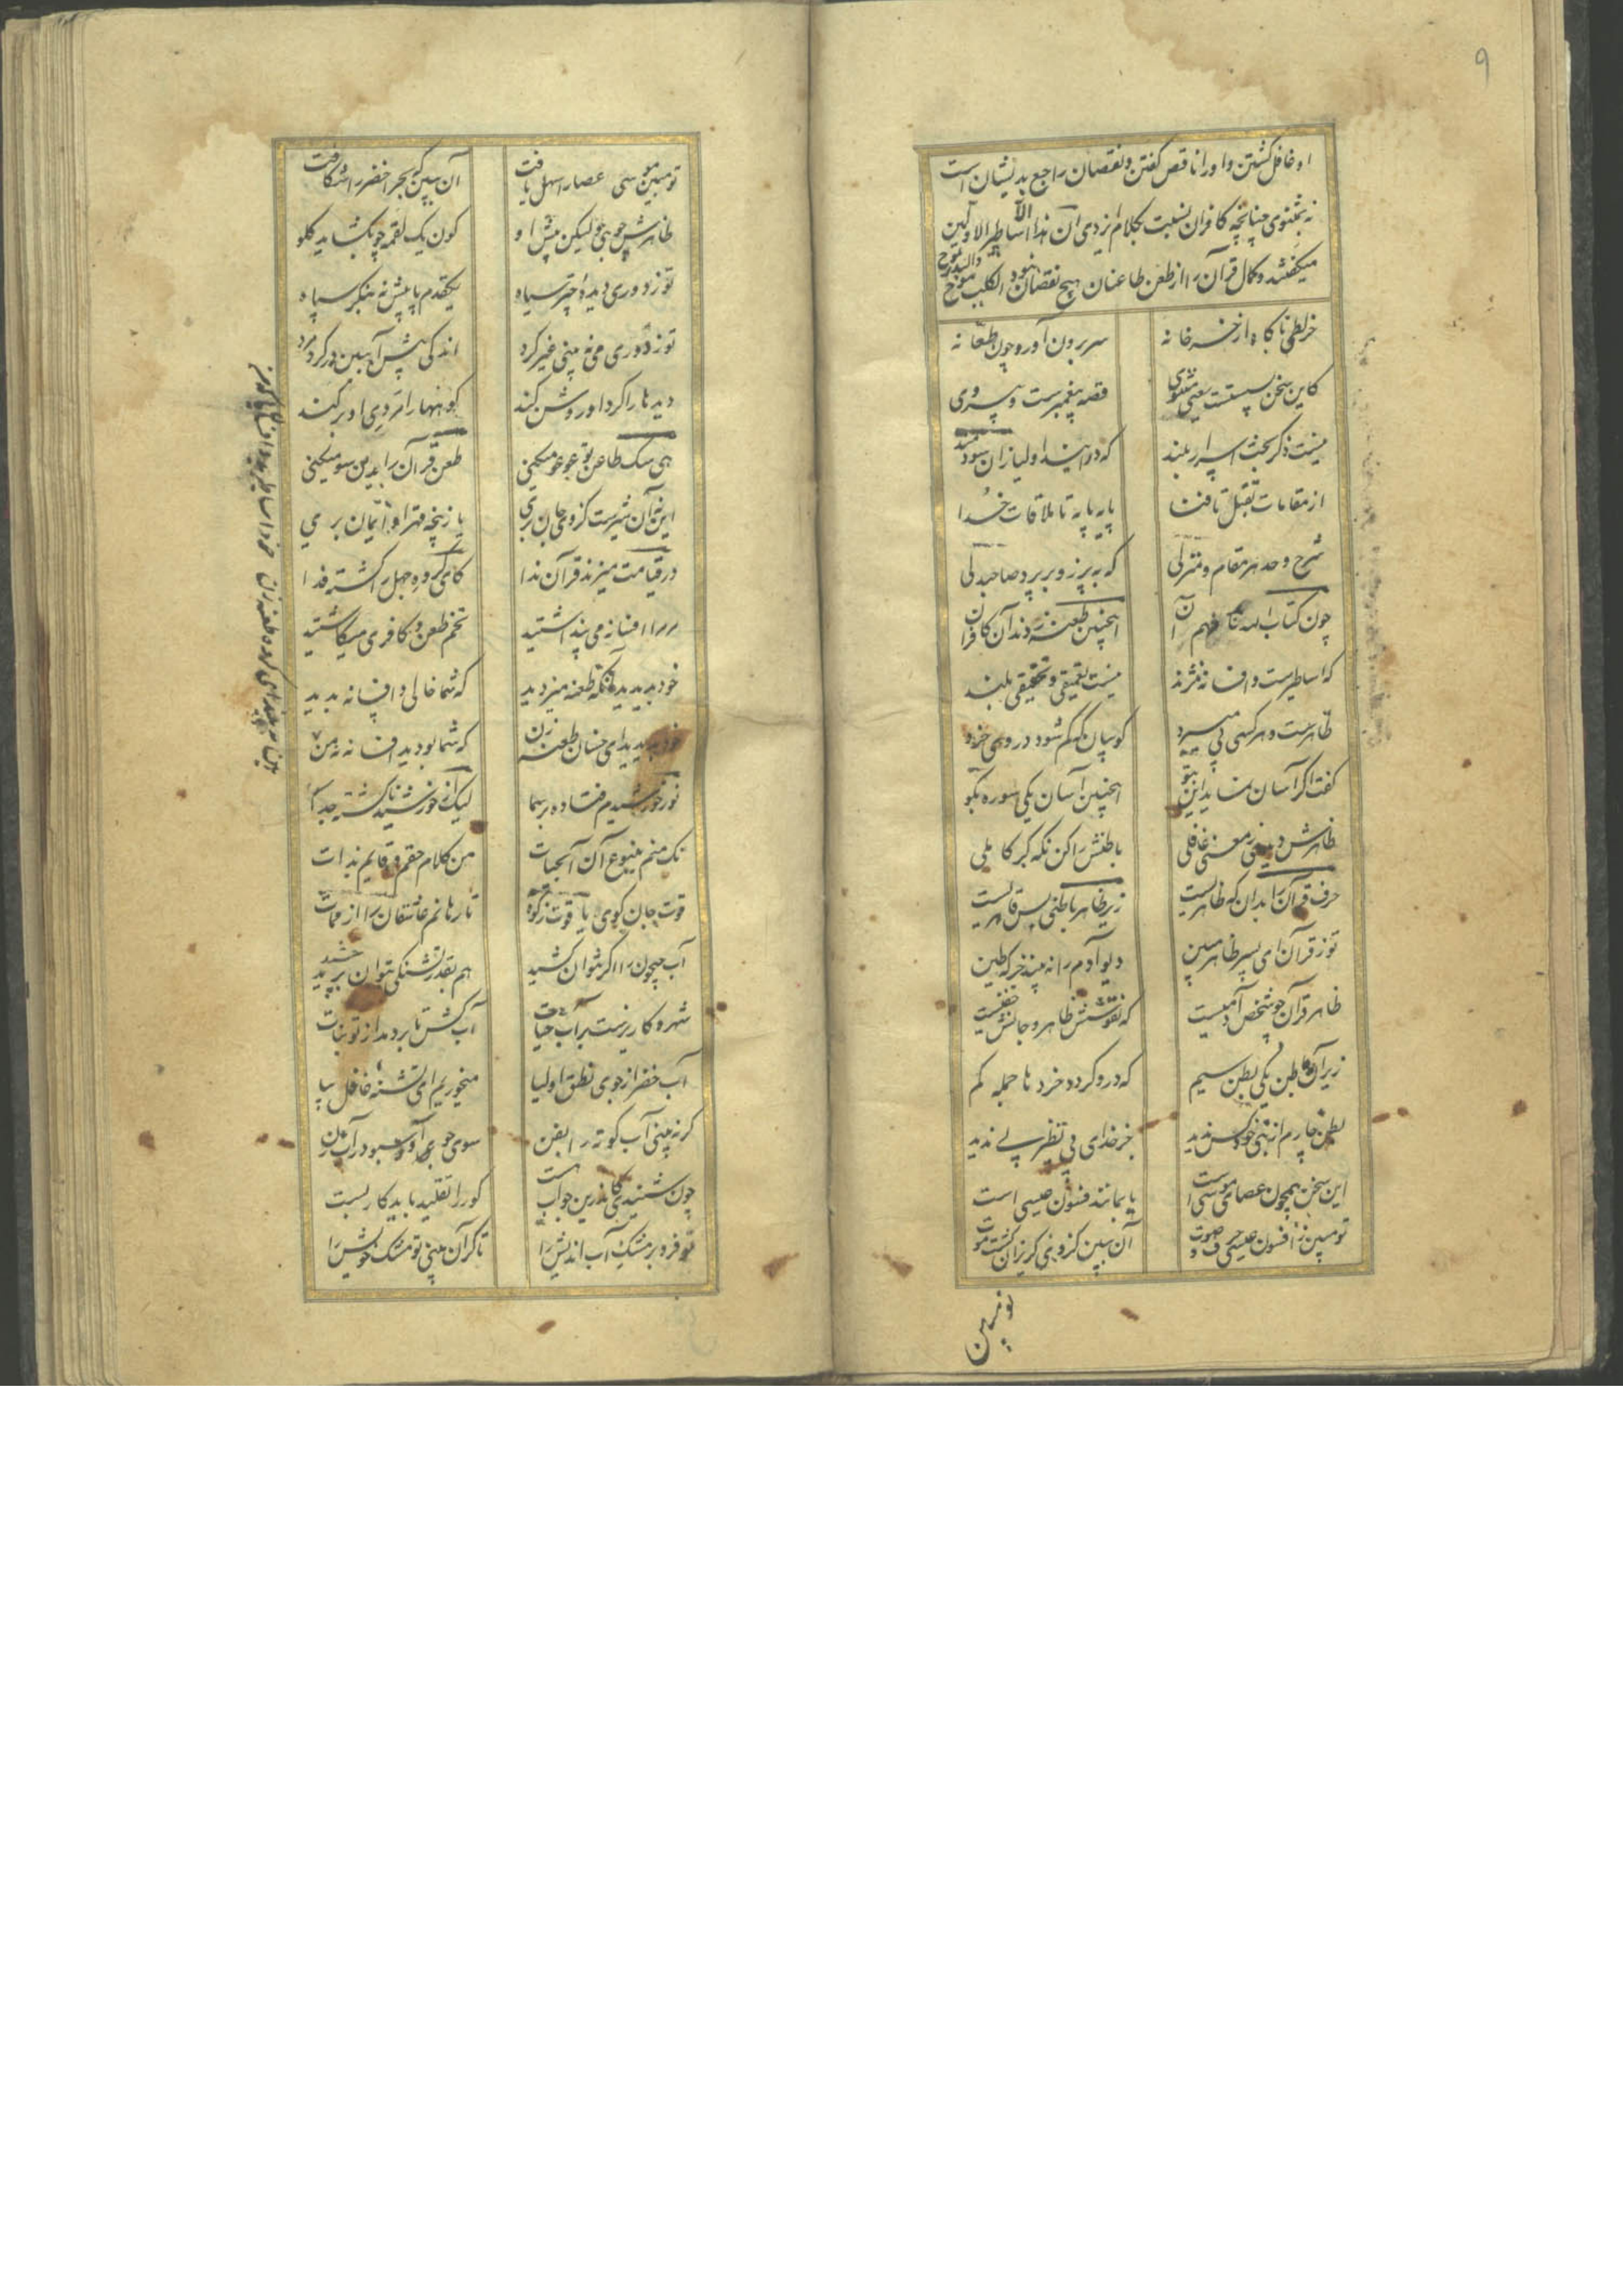 ۹
او غافل گشتن و او را ناقص گفتن و نقصان راجع بدیشان است
نه بمثنوی چنانچه کافران نسبت بکلام ایزدی ان هذا الا اساطیر الاولین
میگفتند و کمال قرآن را از طعن طاعنان هیچ نقصان نبود الکلب
خربطی ناگاه از خرخانه
سر برون آورد چون طعانه
کاین سخن پستست یعنی مثنوی
قصه پیغمبرست و پیروی
نیست ذکر بحث اسرار بلند
که دوانند اولیا زان سو سمند
از مقامات تبتل تا فنا
پایه پایه تا ملاقات خدا
شرح و حد هر مقام و منزلی
که به پر زو بر پرد صاحبدلی
چون کتاب الله بیامد هم آن
اینچنین طعنه زدند آن کافران
که اساطیرست و افسانه نژند
نیست تعمیقی و تحقیقی بلند
ظاهرست و هر کسی پی میبرد
کو بیان که گم شود در وی خرد
گفت اگر آسان نماید این بتو
اینچنین آسان یکی سوره بگو
باطنش را کن نگه گر کاملی
حرف قرآن را بدان که ظاهریست
زیر ظاهر باطنی بس قاهریست
تو ز قرآن ای پسر ظاهر مبین
دیو آدم را نه بیند جز که طین
ظاهر قرآن چو شخص آدمیست
که نقوشش ظاهر و جانش خفیست
زیر آن باطن یکی بطن سیم
که درو گردد خردها جمله گم
بطن چارم از نبی خود کس ندید
جز خدای بی نظیر بی ندید
این سخن همچون عصای موسی است
یا بمانند فسون عیسی است
تو مبین ز افسون عیسی حرف و صوت
آن ببین کز وی گریزان گشت موت
تو مبین
تو مبین موسی عصا را سهل یافت
آن ببین که بحر اخضر را شکافت
ظاهرش چوبی چو لیکن پیش او
کون یک لقمه چو بگشاید گلو
تو ز دوری دیدهٔ چتر سیاه
یکقدم پا پیش نه بنگر سپاه
تو ز دوری می نه بینی غیر گرد
اندکی پیش آ ببین در گرد مرد
دیدها را گرد او روشن کند
کوهها را مردی او بر کند
ای سگ طاعن تو عو عو میکنی
طعن قرآن را بدین سو میکنی
این نه آن شیرست کز وی جان بری
یا ز پنجه قهر او ایمان بری
در قیامت میزند قرآن ندا
کای گروه جهل را گشته فدا
مر مرا افسانه می پنداشتید
تخم طعن و کافری میکاشتید
خود بدیدید آنکه طعنه میزدید
که شما خالی و افسانه بدید
خود بدیدید ای خسان طعنه زن
که شما بودید افسانه نه من
نور خورشیدم فتاده بر شما
لیک از خورشید ناگشته جدا
نک منم ینبوع آن آب حیات
من کلام حقم و قایم بذات
قوت جان گوی یا قوت زکوة
تا رهانم عاشقان را از ممات
آب جیحون را اگر نتوان کشید
هم بقدر تشنگی نتوان برید
چشید
شهره کاریزست پر آب حیات
آب کش تا بر دمد از تو نبات
آب خضر از جوی نطق اولیا
میخوریم ای تشنهٔ غافل بیا
گر نه بینی آب کورانه بفن
سوی جو آور سبو در آب زن
چون شنیدی کاندرین جو آب هست
کور را تقلید باید کار بست
تو فرو بر مشک آب اندیش را
تا گران بینی تو مشک خویش را